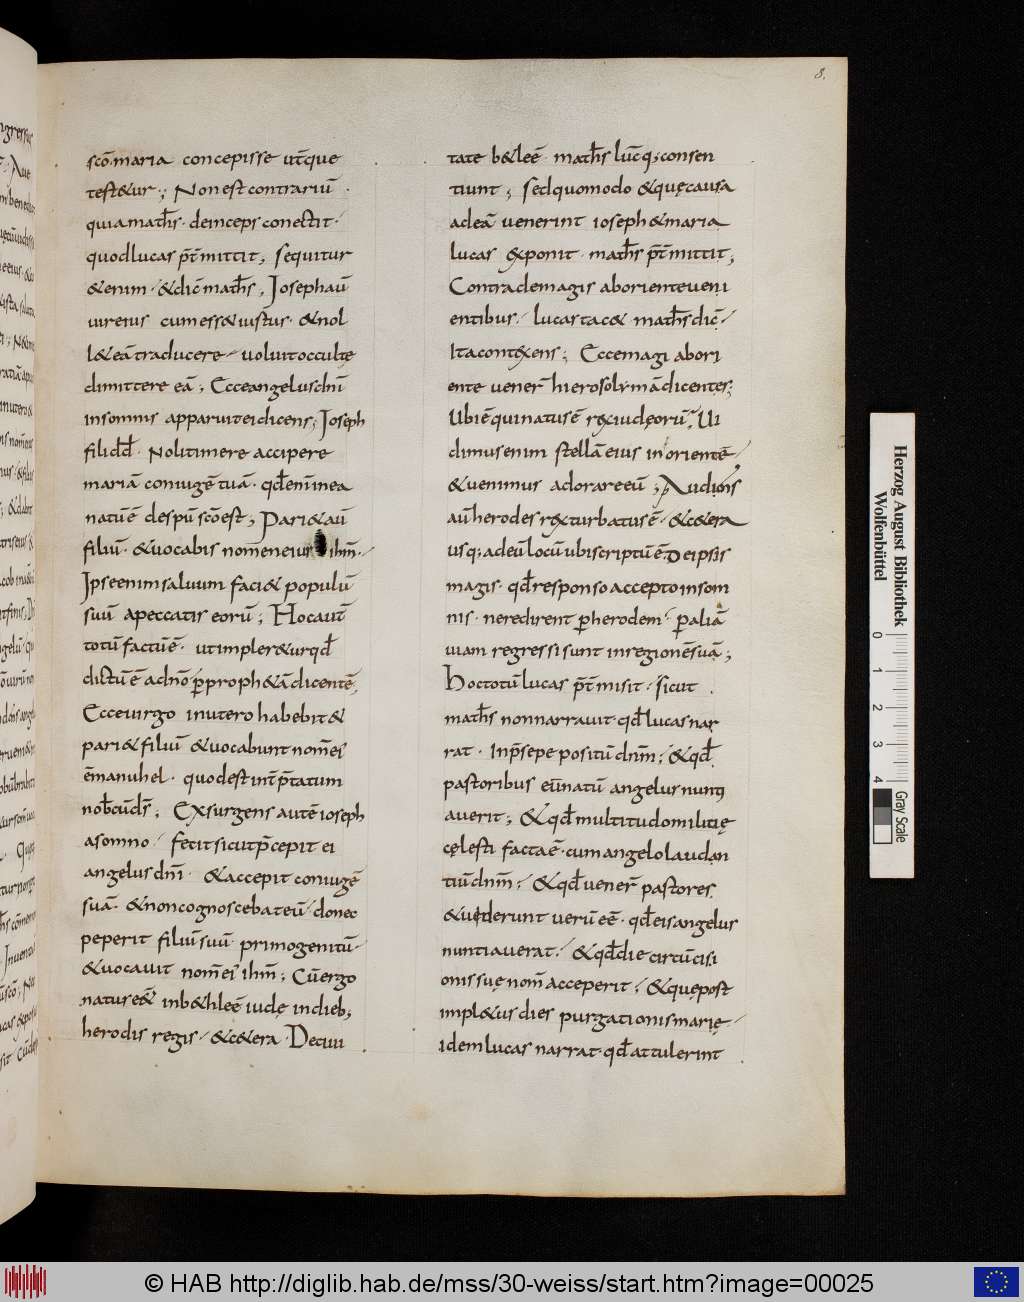 8.
scō maria concepisse ut̄que
test&ur ; Non est contrariū
quia math̄s · deinceps conectit ·
quod lucas p̄t̄mittit ; sequitur
& enim · & dic̄ math̄s ; Ioseph aū
uir eius cum ess& iust̄us · & nol
l& eā traducere · uoluit occulte
dimittere eā ; Ecce angelus dn̄i
in somnis apparuit ei dicens ; Ioseph
fili dd̄ · Noli timere accipere
mariā coniugē tuā · qd̄ enī in ea
natū ē de sp̄u scō est ; Pari& aū
filiū · & uocabis nom̄ en eius ih̄m ·
Ipse enim saluum faci& populū
suū a peccatis eorū ; Hoc aut̄
totū factū ē · ut impler&ur qd̄
dictū ē a dn̄o p̄ proph&ā dicentē ;
Ecce uirgo in utero habebit &
pari& filiū & uocabunt nom̄ ei
ēmanuhel · quod est int̄p̄tatum
nob̄cūd̄s ; Exsurgens autē ioseph
a somno · fecit sicut p̄cepit ei
angelus dn̄i · & accepit coniugē
suā · & non cognoscebat eū · donec
peperit filiū suū primogenitū ·
& uocauit nom̄ ei ih̄m ; Cū ergo
natus ēē in b&hleē iudę in dieb;
herodis regis · & c&era · De ciui
tate b&leē math̄s luc̄q; consen
tiunt ; sed quomodo & quę causa
ad eā uenerint ioseph & maria
lucas exponit · math̄s p̄t̄mittit ;
Contra de magis ab oriente ueni
entibus · lucas tac& math̄s dic̄
Ita contexens ; Ecce magi ab ori
ente uener̄ hierosolymā dicentes ;
Ubi ē qui natus ē rex iudęorū ; Ui
dimus enim stellā eius in orientē
& uenimus adorare eū ; Audiens
aū herodes rex turbatus ē · & c&era
usq; ad eū locū ubi scriptū ē De ipsis
magis · qd̄ responso accepto in som
nis · ne redirent p̄ herodem · p̄ aliā
uiam regressi sunt in regionē suā ;
Hoc totū lucas p̄t̄misit · sicut
math̄s non narrauit · qd̄ lucas nar
rat · In p̄sepe positū dnm̄ ; & qd̄
pastoribus eū natū angelus nunti
auerit ; & qd̄ multitudo militię
cęlesti facta ē · cum angelo laudan
tiū dnm̄ ; & qd̄ uener̄ pastores
& uiderunt uerū eē · qd̄ eis angelus
nuntiauerat · & qd̄ die circūcisi
onis suę nom̄ acceperit · & quę post
impl&us dies purgationis marię
idem lucas narrat · qd̄ attulerint
Herzog August Bibliothek
Wolfenbüttel
0 1 2 3 4
Gray Scale
© HAB http://diglib.hab.de/mss/30-weiss/start.htm?image=00025